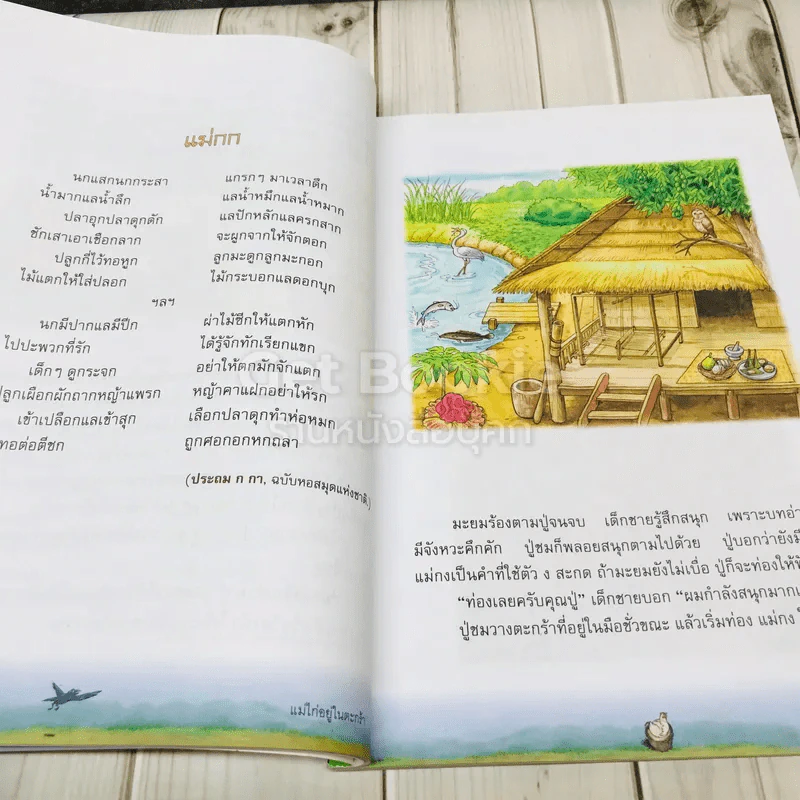 แม่กก
นกแสกนกกระสา แกรกๆ มาเวลาดึก
น้ำมากแลน้ำลึก แลน้ำหมึกแลน้ำหมาก
ปลาอุกปลาดุกดัก แลปักหลักแลครกสาก
ชักเสาเอาเชือกลาก จะผูกจากให้จักตอก
ปลูกกี่ไว้ทอหูก ลูกมะดูกลูกมะกอก
ไม้แตกให้ใส่ปลอก ไม้กระบอกแลดอกบุก
ฯลฯ
นกมีปากแลมีปีก ผ่าไม้ซีกให้แตกหัก
ไปปะพวกที่รัก ได้รู้จักทักเรียกแขก
เด็กๆ ดูกระจก อย่าให้ตกมักจักแตก
ปลูกเผือกผักถากหญ้าแพรก หญ้าคาแฝกอย่าให้รก
เข้าเปลือกแลเข้าสุก เลือกปลาดุกทำห่อหมก
ทอต่อตีชก ถูกศอกอกหกถลา
(ประถม ก กา, ฉบับหอสมุดแห่งชาติ)
แม่ไก่อยู่ในตะกร้า
มะยมร้องตามปู่จนจบ เด็กชายรู้สึกสนุก เพราะบทอ่า
มีจังหวะคึกคัก ปู่ชมก็พลอยสนุกตามไปด้วย ปู่บอกว่ายังมี
แม่กงเป็นคำที่ใช้ตัว ง สะกด ถ้ามะยมยังไม่เบื่อ ปู่ก็จะท่องให้ฟั
“ท่องเลยครับคุณปู่” เด็กชายบอก “ผมกำลังสนุกมากเ
ปู่ชมวางตะกร้าที่อยู่ในมือชั่วขณะ แล้วเริ่มท่อง แม่กง ใ
Get Bookie
ร้านหนังสือบุคกี้